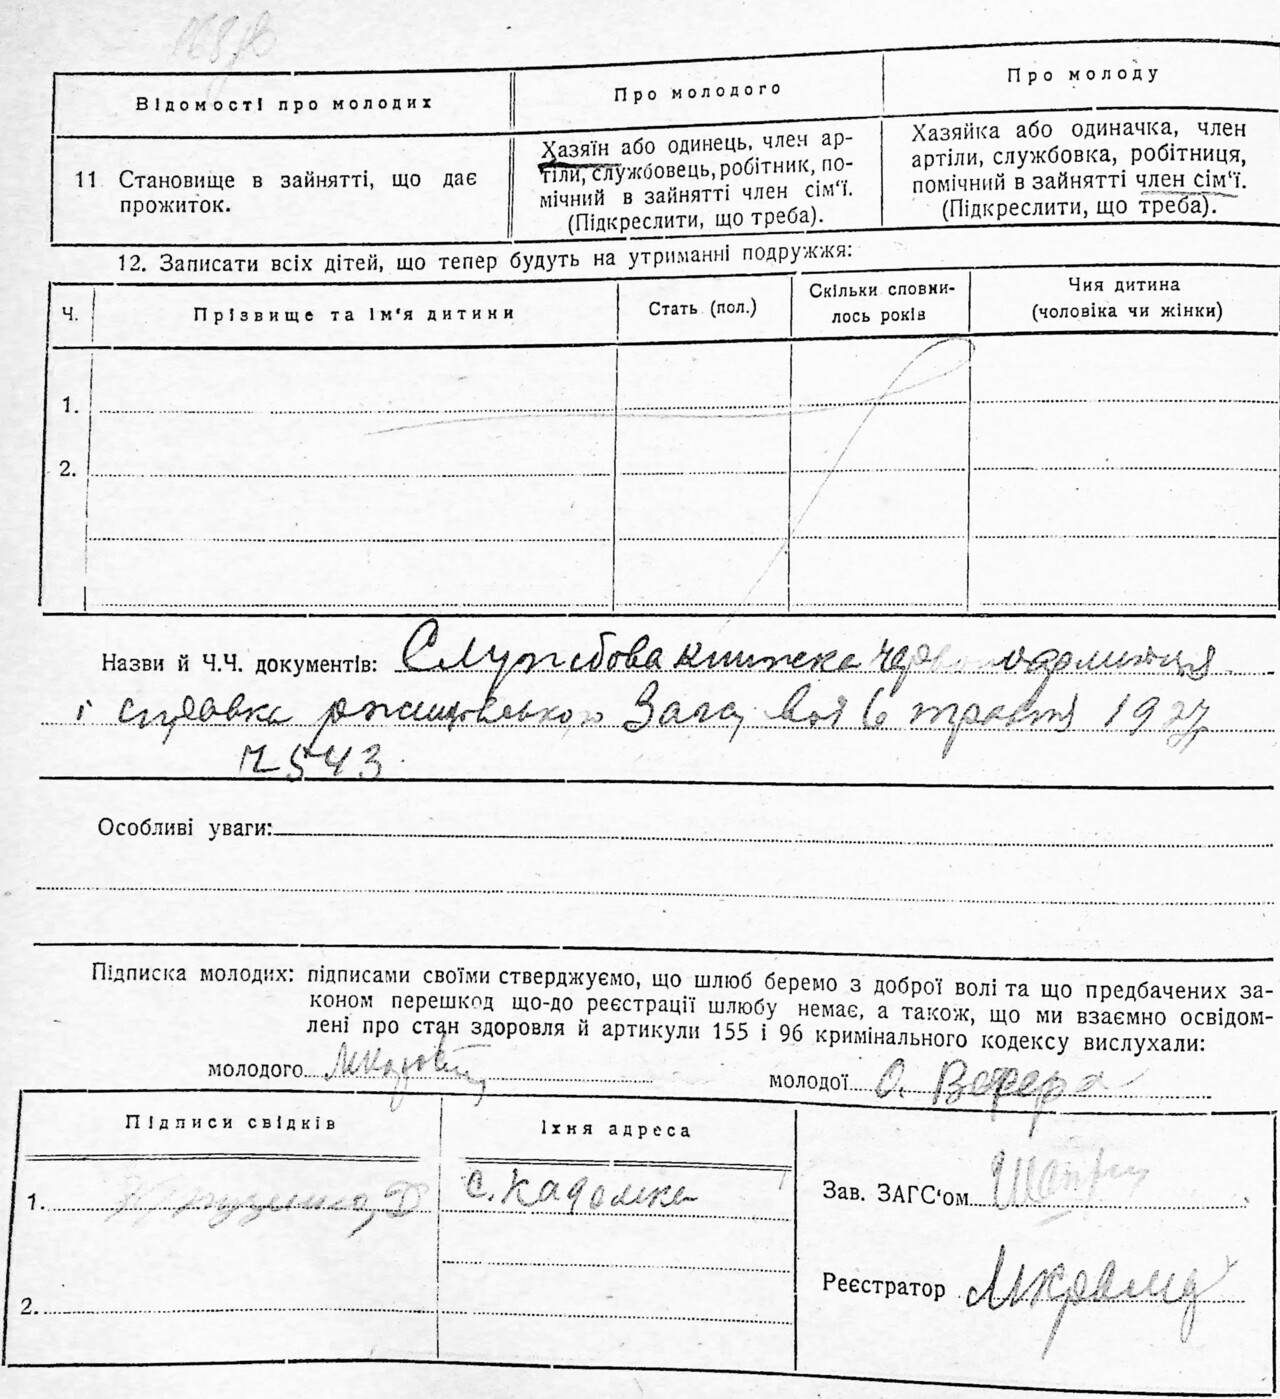 Відомості про молодих
Про молодого
Про молоду
11 Становище в зайнятті, що дає
прожиток.
Хазяїн або одинець, член ар-
тіли, службовець, робітник, по-
мічний в зайнятті член сім'ї.
(Підкреслити, що треба).
Хазяйка або одиначка, член
артіли, службовка, робітниця,
помічний в зайнятті член сім'ї.
(Підкреслити, що треба).
12. Записати всіх дітей, що тепер будуть на утриманні подружжя:
Ч.
Прізвище та ім'я дитини
Стать (пол.)
Скільки сповни-
лось років
Чия дитина
(чоловіка чи жінки)
1.
2.
Назви й Ч.Ч. документів: Службова книжка
і справка Загсу від 6 травня 1927
Ч 543
Особливі уваги:
Підписка молодих: підписами своїми стверджуємо, що шлюб беремо з доброї волі та що предбачених за-
коном перешкод що-до реєстрації шлюбу немає, а також, що ми взаємно освідом-
лені про стан здоровля й артикули 155 і 96 кримінального кодексу вислухали:
молодого
молодої О.
Підписи свідків
Їхня адреса
1.
с. Кадомка
2.
Зав. ЗАГС'ом
Реєстратор